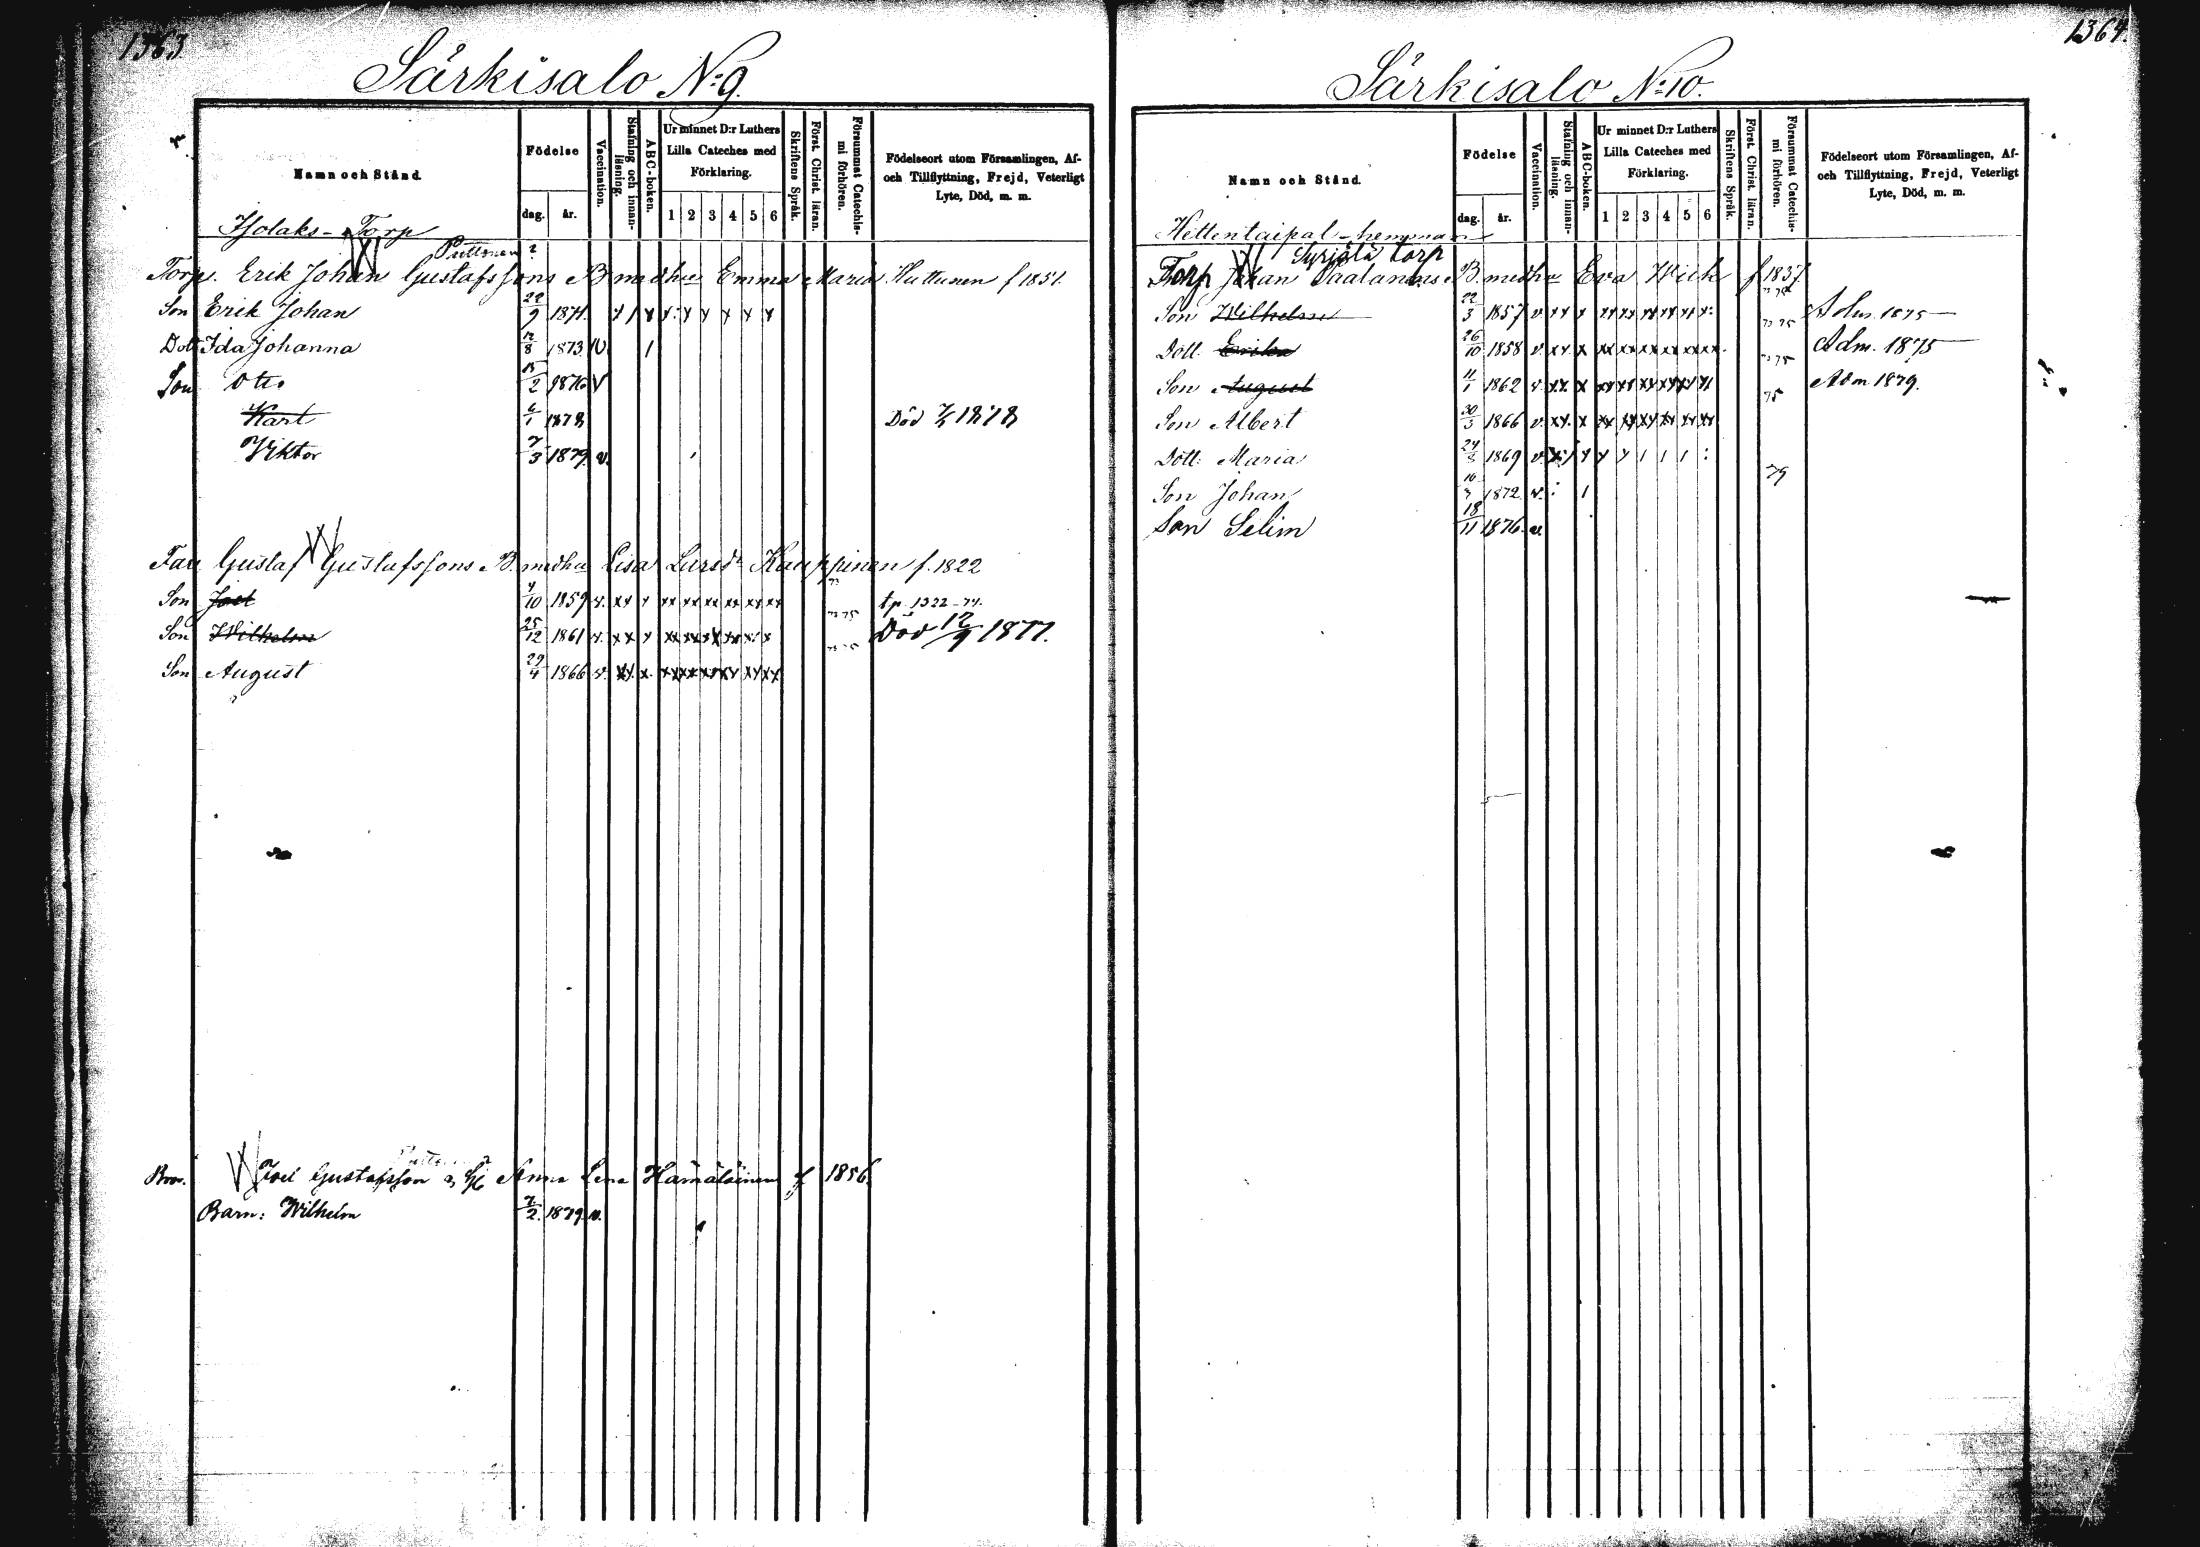 1363
Särkisalo N:o 9.
Namn och Stånd.
Födelse
dag.
år.
Vaccination.
Stafning och innan-läsning.
ABC-boken.
Ur minnet D:r Luthers
Lilla Cateches med
Förklaring.
1 2 3 4 5 6
Skriftens Språk.
Först. Christ. läran.
Försummat Catechis-
mi förhören.
Födelseort utom Församlingen, Af-
och Tillflyttning, Frejd, Veterligt
Lyte, Död, m. m.
Torp
Puttonen
Torp. Erik Johan Gustafssons B. med hu Emma Maria Huttunen f 1851.
Son Erik Johan 1871. x x x x x x
Dott Ida Johanna 12/8 1873 v. 1
Son Otto 2 1876 v
Kart 6/1 1878 Död 1878
Viktor 7/3 1879 v.
Gustaf Gustafssons B. med hu Lisa Larsdr Kauppinen f. 1822
Son Joel 4/10 1859 v. xx x xx xx xx xx xx xx tp. 1322-74.
Son Wilhelm 25/12 1861 v. xx x 73 75 Död 12/9 1877.
Son August 29/4 1866 v. xx x. xx xx xx xx xx xx
Bror. Joel Gustafsson Anna Lena Hämäläinen f 1856.
Barn: Wilhelm 7/2. 1879. v.
1364.
Särkisalo N:o 10.
Namn och Stånd.
Födelse
dag.
år.
Vaccination.
Stafning och innan-läsning.
ABC-boken.
Ur minnet D:r Luthers
Lilla Cateches med
Förklaring.
1 2 3 4 5 6
Skriftens Språk.
Först. Christ. läran.
Försummat Catechis-
mi förhören.
Födelseort utom Församlingen, Af-
och Tillflyttning, Frejd, Veterligt
Lyte, Död, m. m.
Hettentaipal-hemman
Syrjälä torp
Torp Johan Paalanens B. med hu Eva Wiik f 1837
Son Wilhelm 22/3 1857 v xx x Adm. 1875
Dott. Erika 26/10 1858 v. xx x xx xx xx xx xx xx 75 Adm. 1875
Son August 11/1 1862 v. xx x xx xx xx xx xx 75 Adm 1879.
Son Albert 30/3 1866 v. xx. x xx xx xx xx xx xx 75
Dott: Maria 1869 v. x x x 1 1 1
Son Johan 1872 v. 1 79
Son Selim 18/11 1876. v.